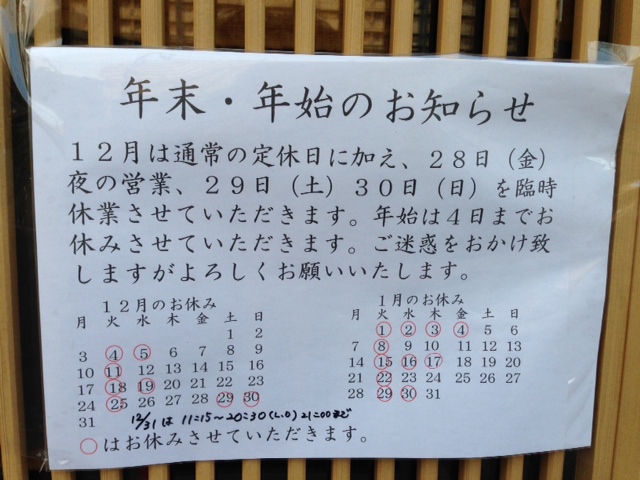 年末・年始のお知らせ
１２月は通常の定休日に加え、２８日（金）
夜の営業、２９日（土）３０日（日）を臨時
休業させていただきます。年始は４日までお
休みさせていただきます。ご迷惑をおかけ致
しますがよろしくお願いいたします。
１２月のお休み
月 火 水 木 金 土 日
1 2
3 4 5 6 7 8 9
10 11 12 13 14 15 16
17 18 19 20 21 22 23
24 25 26 27 28 29 30
31
12/31 は 11:15〜20:30(L.O) 21:00まで
１月のお休み
月 火 水 木 金 土 日
1 2 3 4 5 6
7 8 9 10 11 12 13
14 15 16 17 18 19 20
21 22 23 24 25 26 27
28 29 30 31
○はお休みさせていただきます。